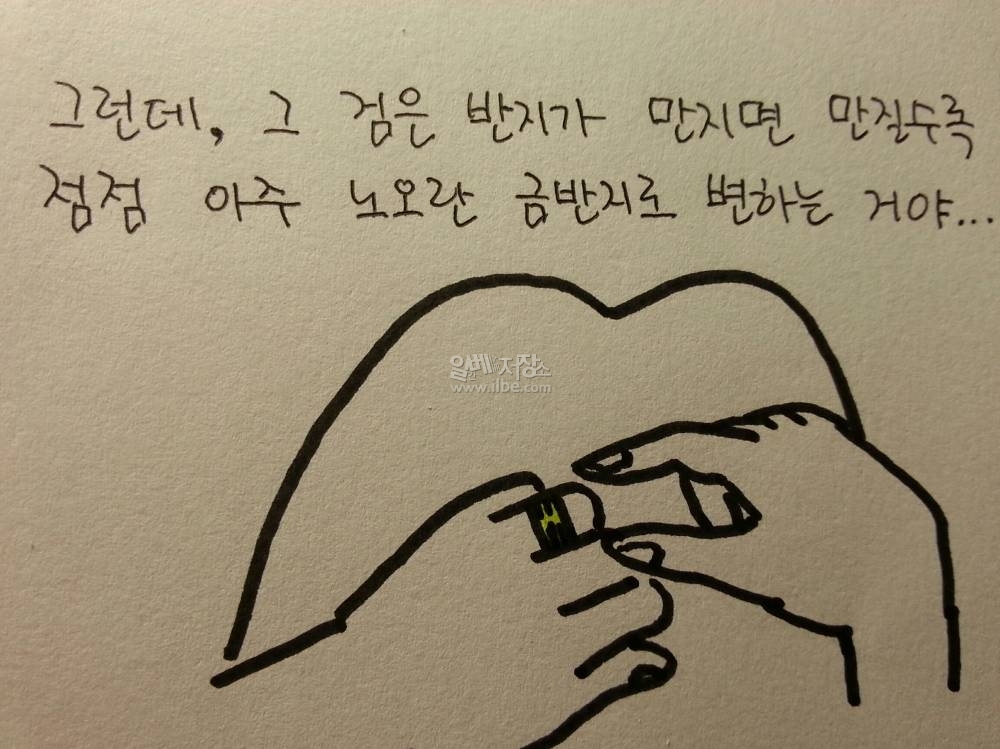 그런데, 그 검은 반지가 만지면 만질수록
점점 아주 노오란 금반지로 변하는 거야...
일베저장소
www.ilbe.com